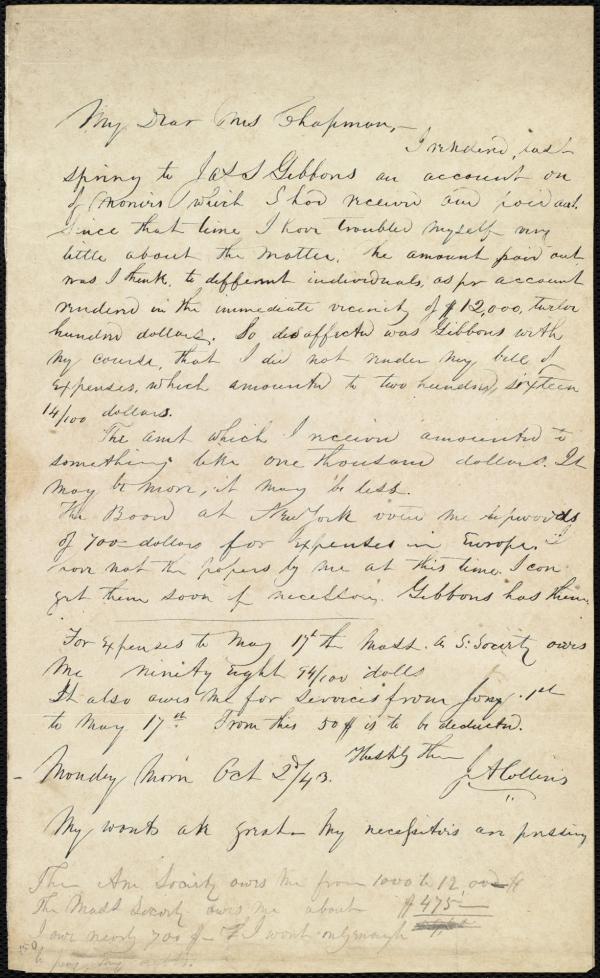 My Dear Mrs Chapman,—
I rendered, last
spring to Jas S Gibbons an account on
of monies which I had received and paid out.
Since that time I have troubled myself very
little about the matter. The amount paid out
was I think, to different individuals, as pr account
rendered in the immediate vicinity of $12,000, twelve
hundred dollars. So disaffected was Gibbons with
my course, that I did not render my bill of
Expenses, which amounted to two hundred, sixteen
14/100 dollars.
The amt which I received amounted to
something like one thousand dollars. It
may be more, it may be less.
The Board at New York voted me upwards
of 700= dollars for expenses in Europe. I
have not the papers by me at this time. I can
get them soon if necessary. Gibbons has them.
For Expenses to May 17th the Mass. A. S. Society owes
me ninety eight 94/100 dolls
It also owes me for services from Jany. 1st
to May 17th. From this 50 $ is to be deducted.
Monday Morn Oct 2d/43. Hastily thine J A Collins
My wants are great— My necessities are pressing
The Am Society owes me from 1000 to 12,00 $
The Mass Society owes me about $475—
I owe nearly 700 $— I want only enough
to pay my debts.